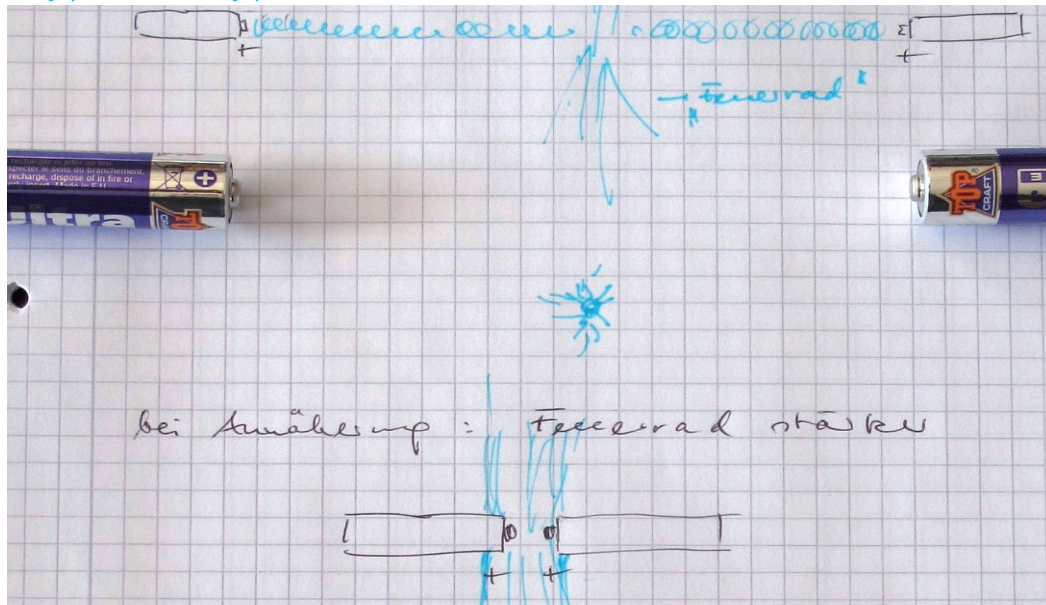 + +
"Feuerrad"
recharger ni jeter au feu.
respecter le sens du branchement.
recharge, dispose of in fire or
Made in E.U.
+
ultra
TOP
CRAFT
TOP
CRAFT
bei Annäherung : Feuerrad stärker
+ +